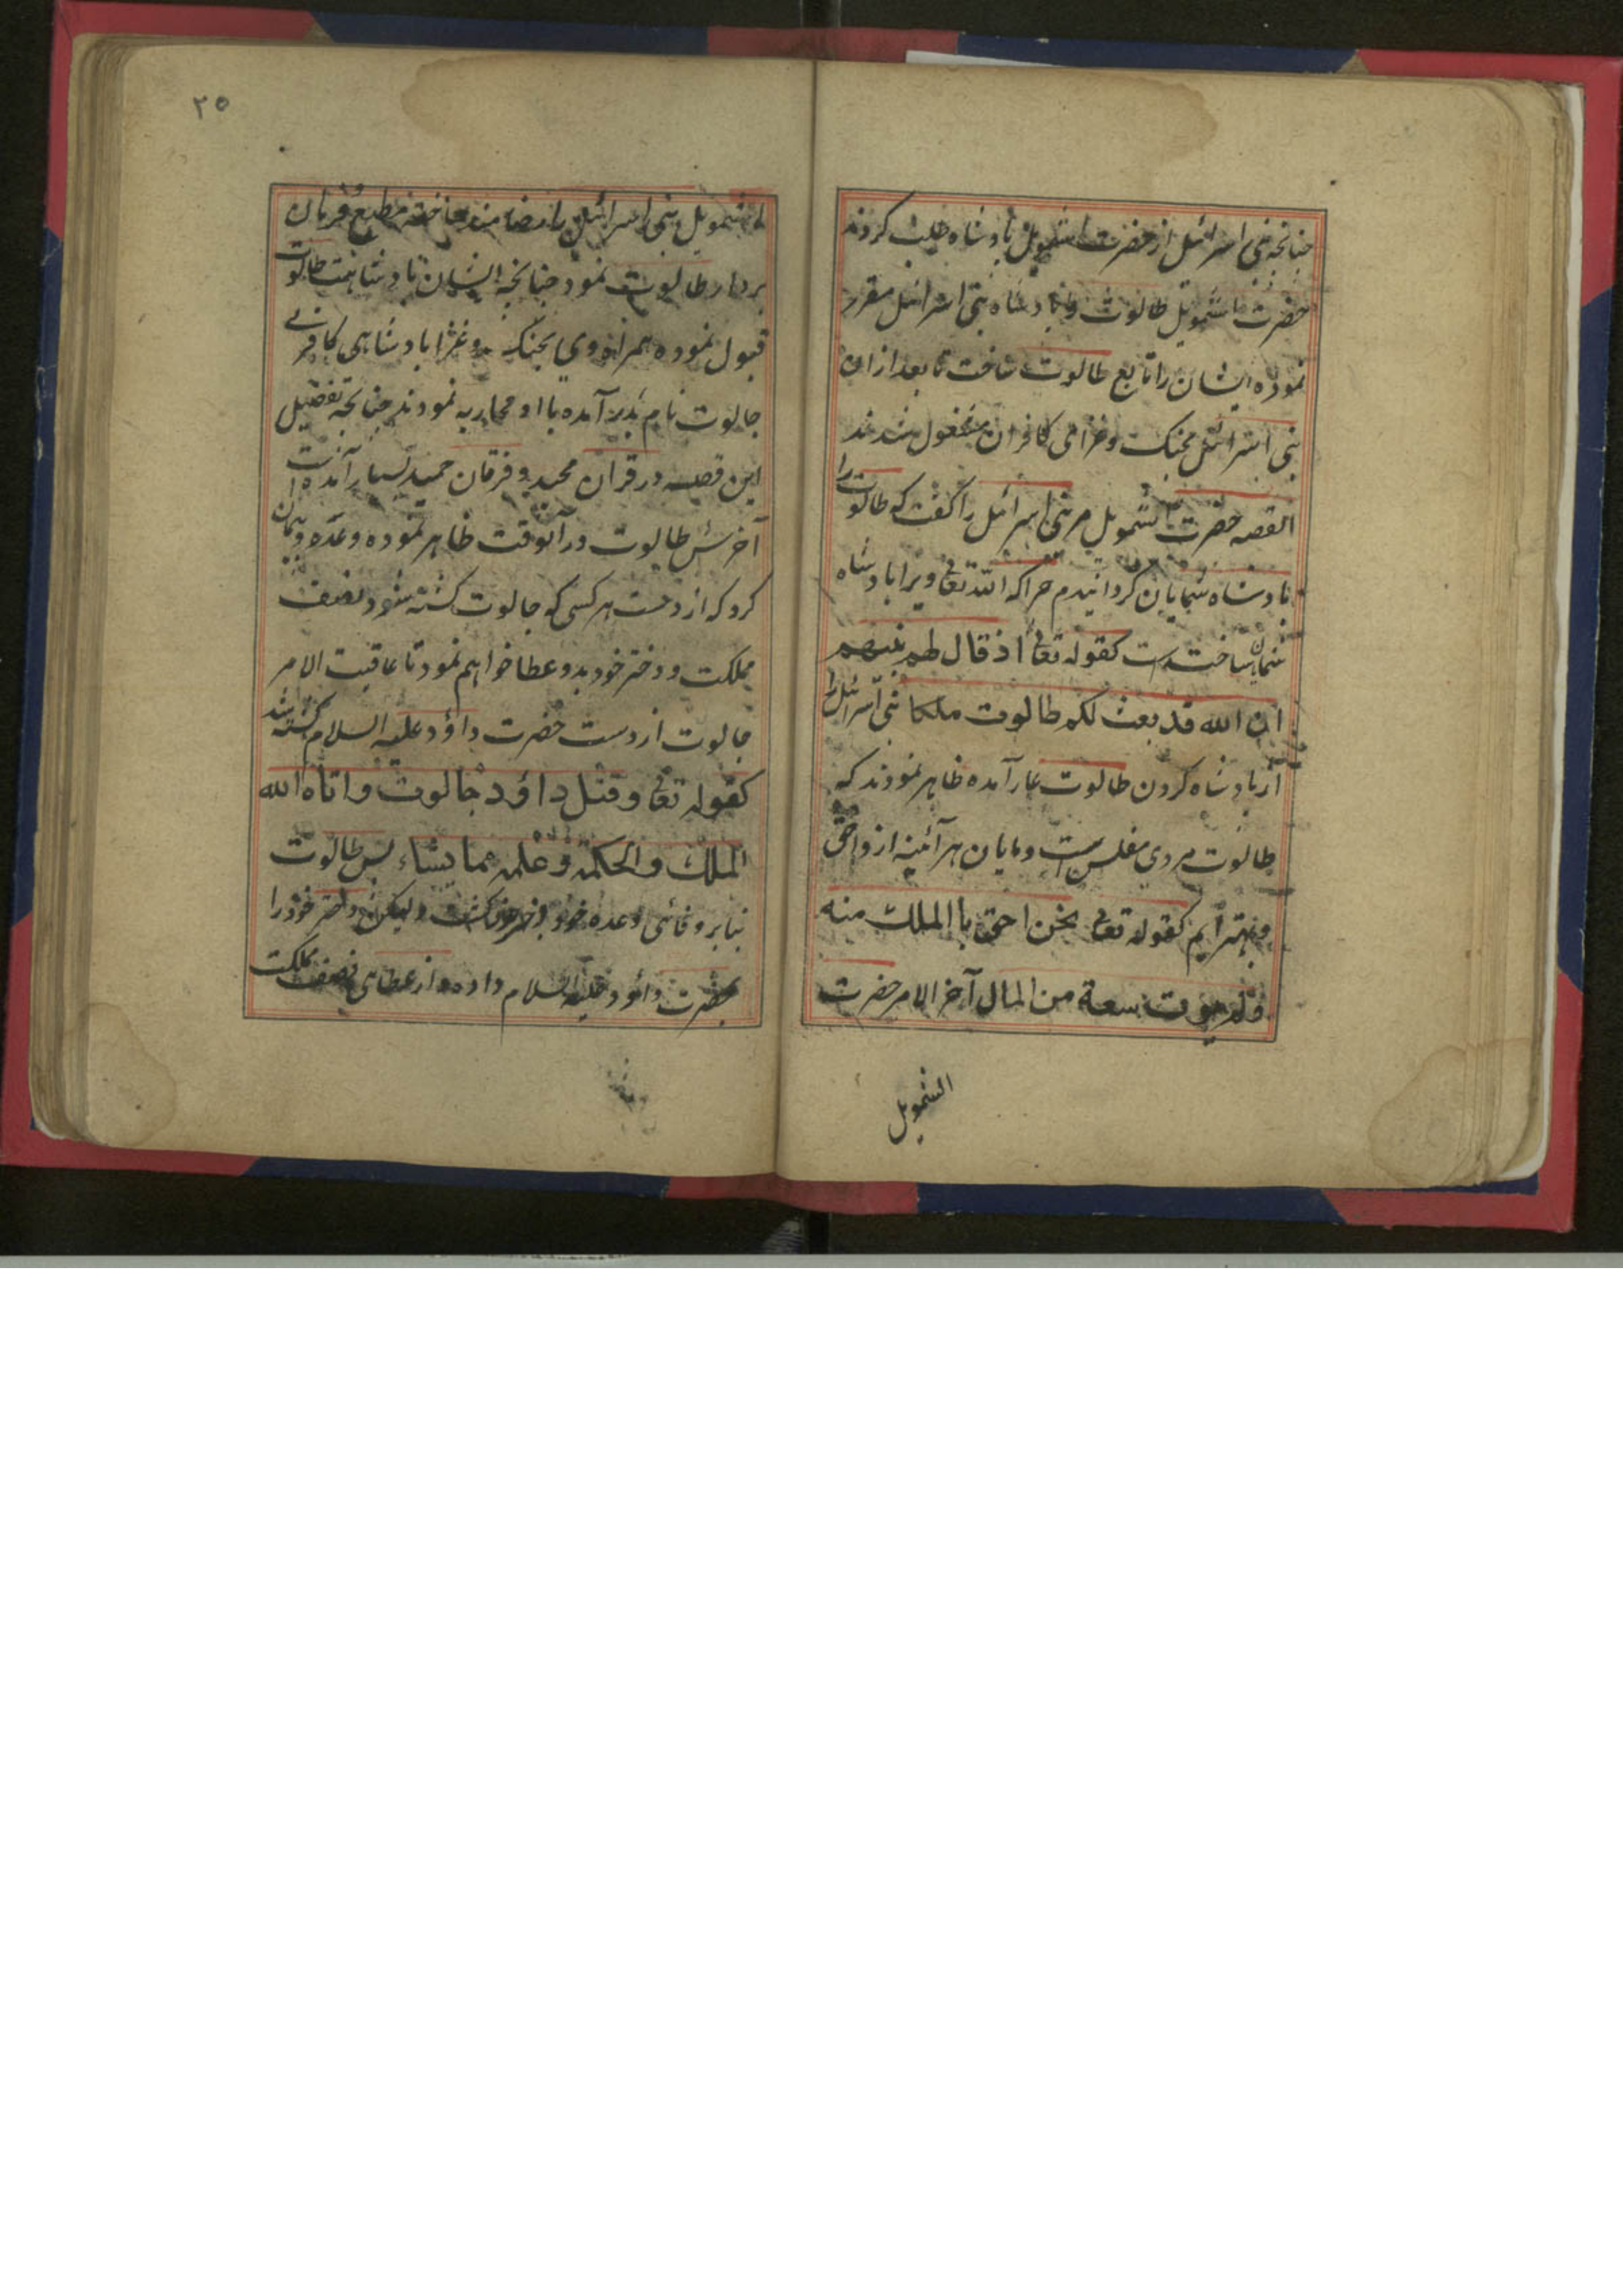 چنانچه بنی اسرائیل از حضرت اشمویل بادشاه طلب کردند
حضرت اشمویل طالوت را بادشاه بنی اسرائیل مقرر
نموده ایشان را تابع طالوت ساخت تا بعد ازان
بنی اسرائیل بجنک وغزامی کافران مشغول شدند
القصه حضرت اشمویل مر بنی اسرائیل را کفت که طالوت را
بادشاه شمایان کردانیدم چرا که الله تعالی ویرا بادشاه
شمایان ساخته است کقوله تعالی اذ قال لهم نبیهم
ان الله قد بعث لکم طالوت ملکا بنی اسرائیل را
از بادشاه کردن طالوت عار آمده ظاهر نمودند که
طالوت مردی مفلس است ومایان هر آئینه ازو احق
وبهتر ایم کقوله تعالی نحن احق باالملك منه
ولم یوت سعة من المال آخر الامر حضرت
اشمویل
۲۵
اشمویل بنی اسرائیل را رضامند ساخته مطیع وفرمان
بردار طالوت نمود چنانچه ایشان بادشاهت طالوت
قبول نموده همراه وی بجنک وغزا بادشاهی کافری
جالوت نام بدر آمده با او محاربه نمودند چنانچه تفصیل
این قصه در قران مجید وفرقان حمید بسیار آمده است
آخرش طالوت در آنوقت ظاهر نموده وعده وپیمان
کرد که از دست هر کسی که جالوت کشته شود نصف
مملکت ودختر خود بدو عطا خواهم نمود تا عاقبت الامر
جالوت از دست حضرت داؤد علیه السلام کشته شد
کقوله تعالی وقتل داؤد جالوت واتاه الله
الملك والحکمة وعلمه مما یشاء پس طالوت
بنابر وفائی وعده خود دختر خود را
بحضرت داؤد علیه السلام داده واز عطاهی نصف مملکت